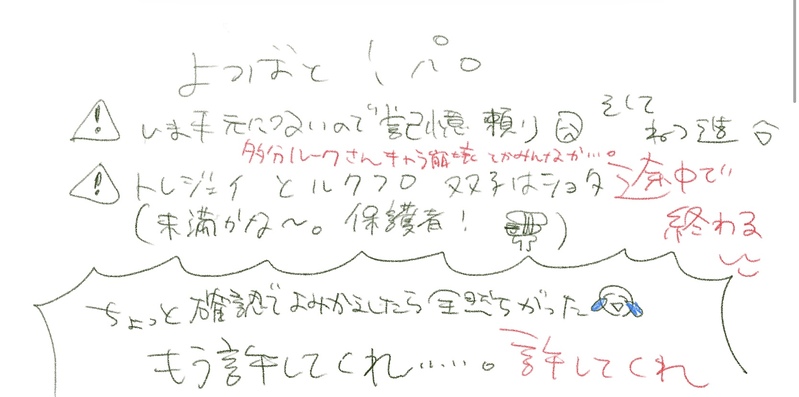 よつばと!パロ
いま手元にないので記憶頼り そして ねつ造
多分ルークさんキャラ崩壊 てかみんなか…。
トレジェイとルクフロ 双子はショタ 途中で
(未満かな〜。保護者! ) 終わる
ちょっと確認でよみかえしたら全然ちがった
もう許してくれ……。許してくれ